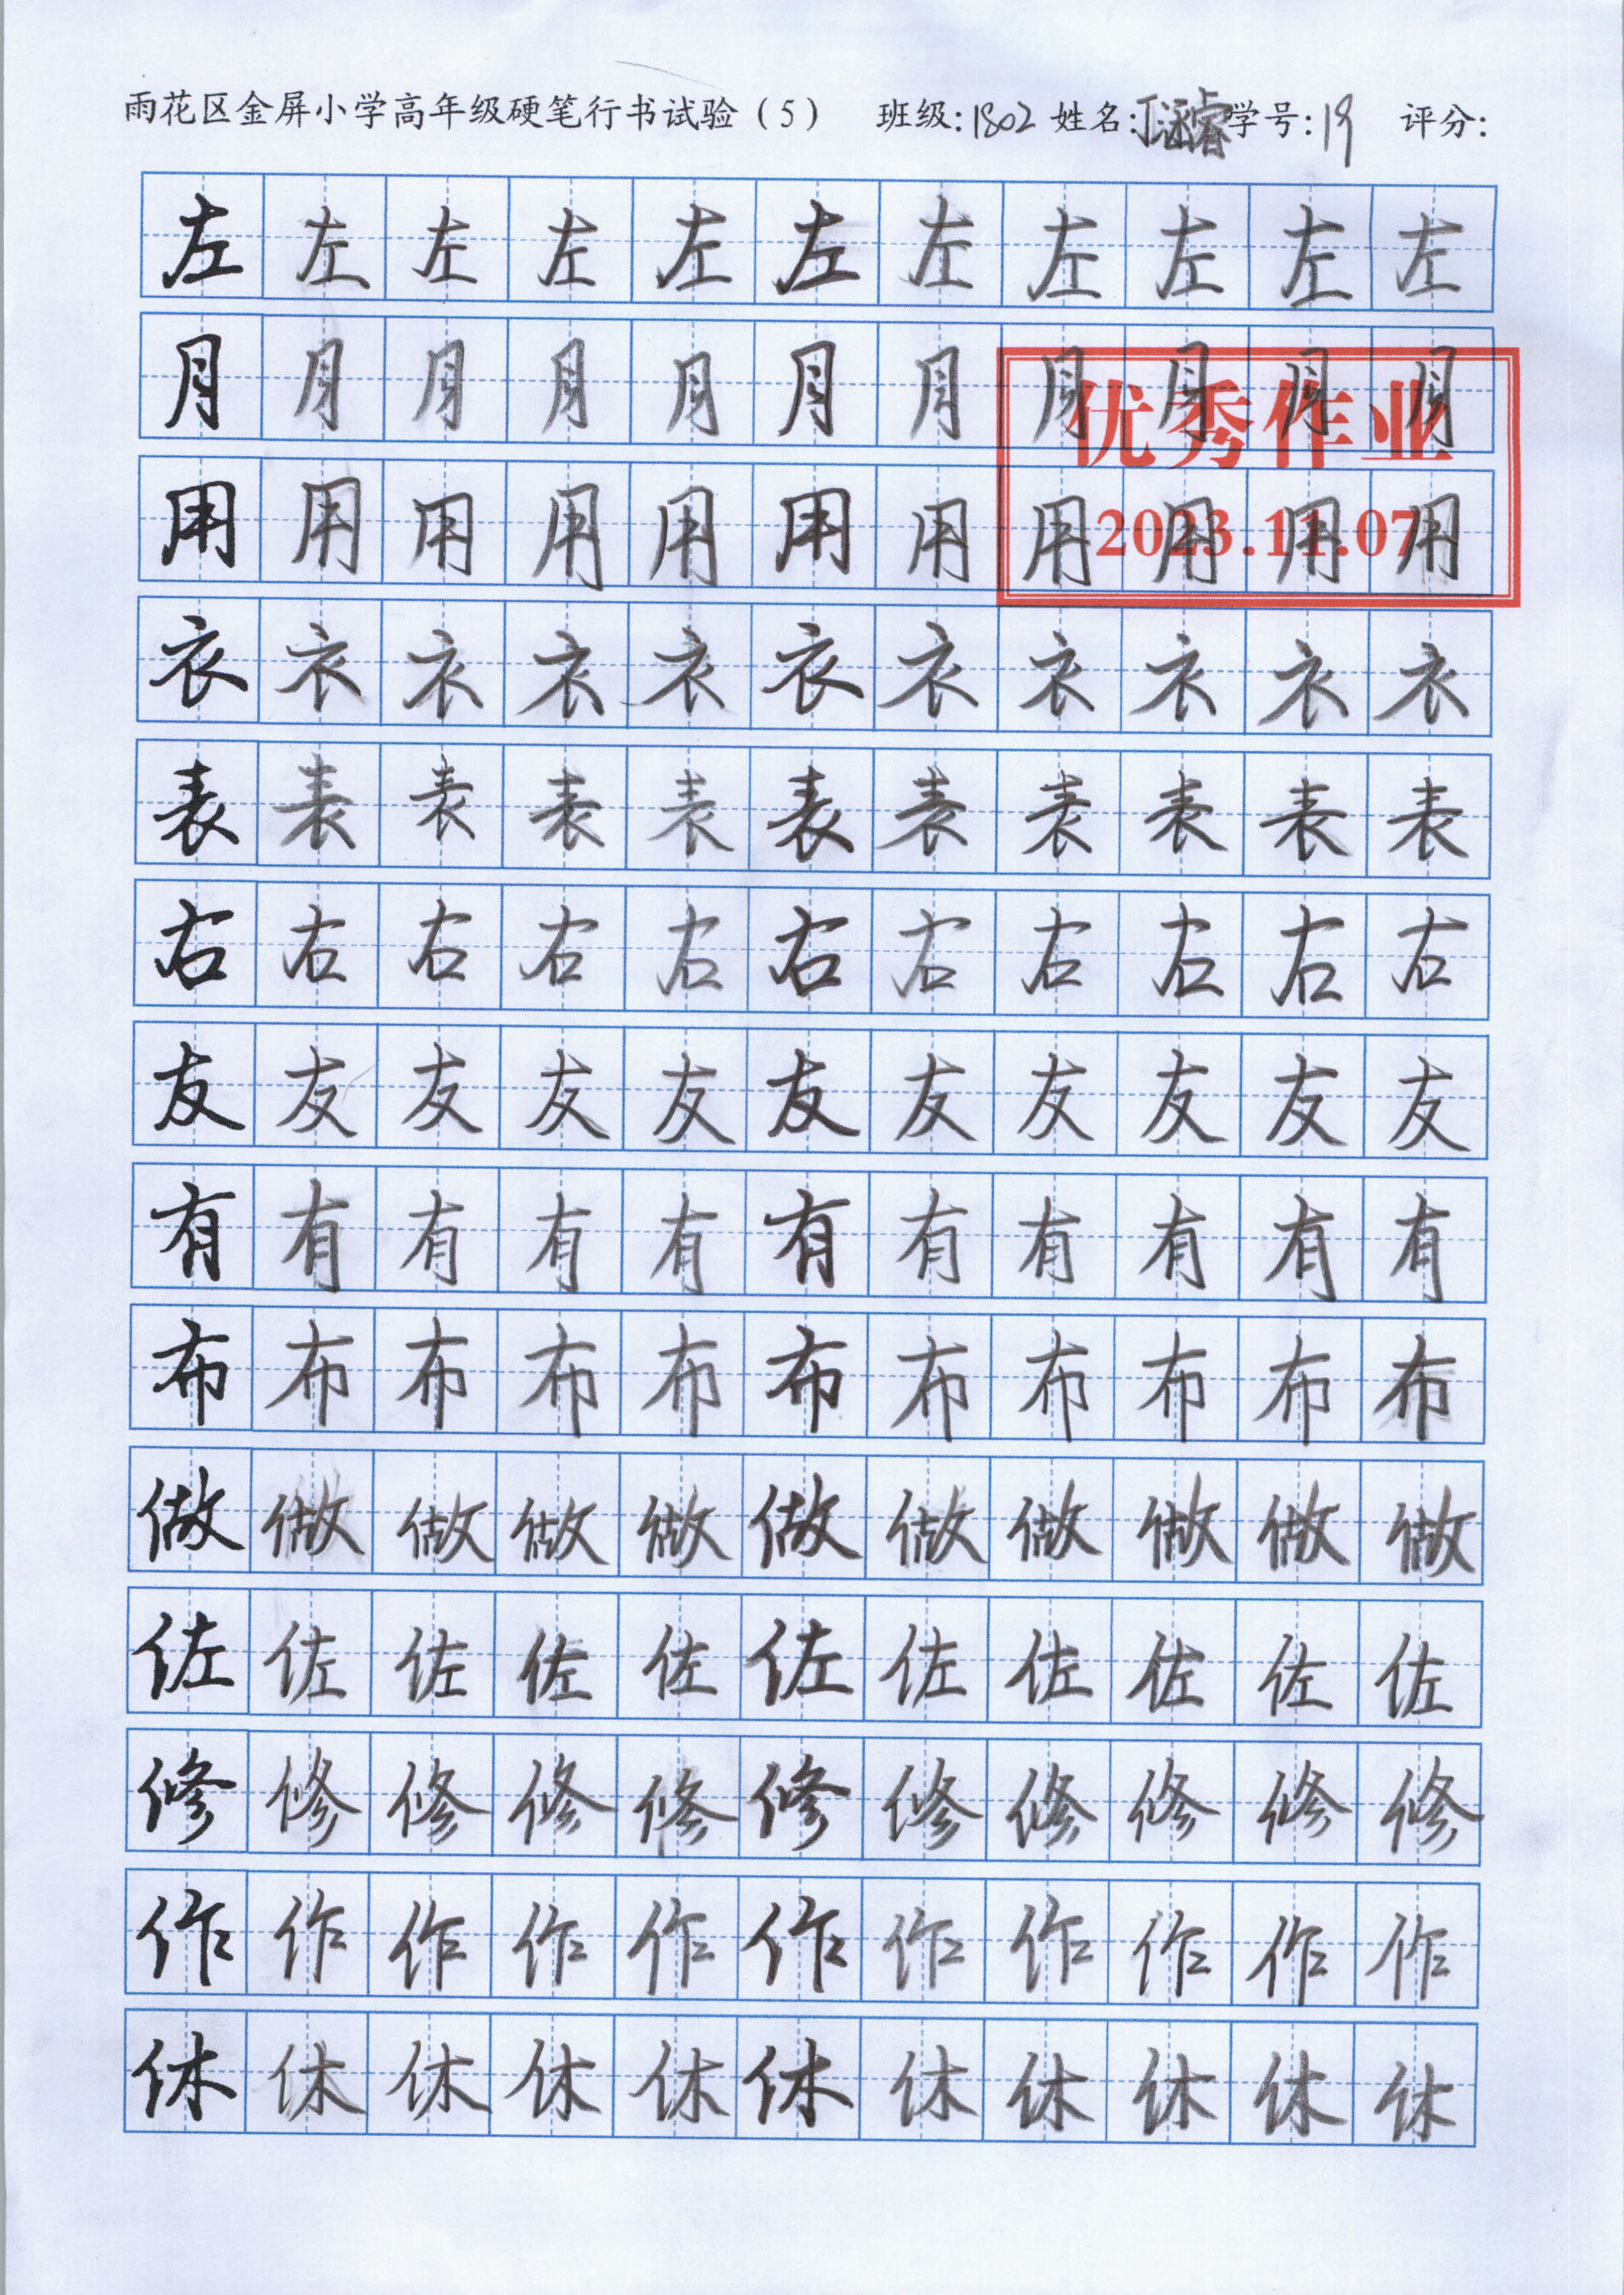 雨花区金屏小学高年级硬笔行书试验（5） 班级:1802 姓名:丁涵睿 学号:19 评分:
左左左左左左左左左左左
月月月月月月月月月月月
优秀作业
用用用用用用用用用用用
2023.11.07
衣衣衣衣衣衣衣衣衣衣衣
表表表表表表表表表表表
右右右右右右右右右右右
友友友友友友友友友友友
有有有有有有有有有有有
布布布布布布布布布布布
做做做做做做做做做做做
佐佐佐佐佐佐佐佐佐佐佐
修修修修修修修修修修修
作作作作作作作作作作作
休休休休休休休休休休休